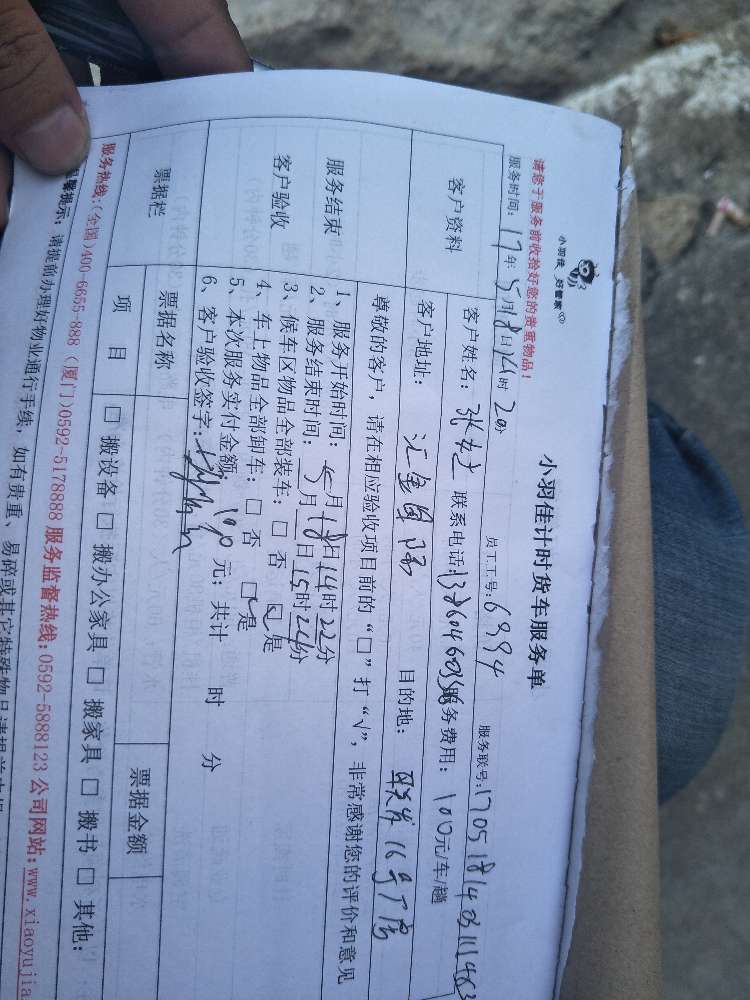 小羽佳 好管家
小羽佳计时货车服务单
请您于服务前收拾好您的贵重物品！
服务时间：17年5月18日14时2分 员工工号：6994 服务联号：
客户资料 客户姓名： 联系电话： 服务费用：100元/车/趟
客户地址： 目的地： 16号厂房
尊敬的客户，请在相应验收项目前的“□”打“√”，非常感谢您的评价和意见
服务结束
客户验收
1、服务开始时间：5月18日14时22分
2、服务结束时间：5月18日15时24分
3、候车区物品全部装车：□ 否 ☑ 是
4、车上物品全部卸车：□ 否 ☑ 是
5、本次服务实付金额：190元；共计 时 分
6、客户验收签字：
票据栏 票据名称 票据金额
项 目 □ 搬设备 □ 搬办公家具 □ 搬家具 □ 搬书 □ 其他：
服务热线：(全国)400-6655-888 (厦门)0592-5178888 服务监督热线：0592-5888123 公司网站：www.xiaoyujia
温馨提示：请提前办理好物业通行手续，如有贵重、易碎或其它特殊物品请提前